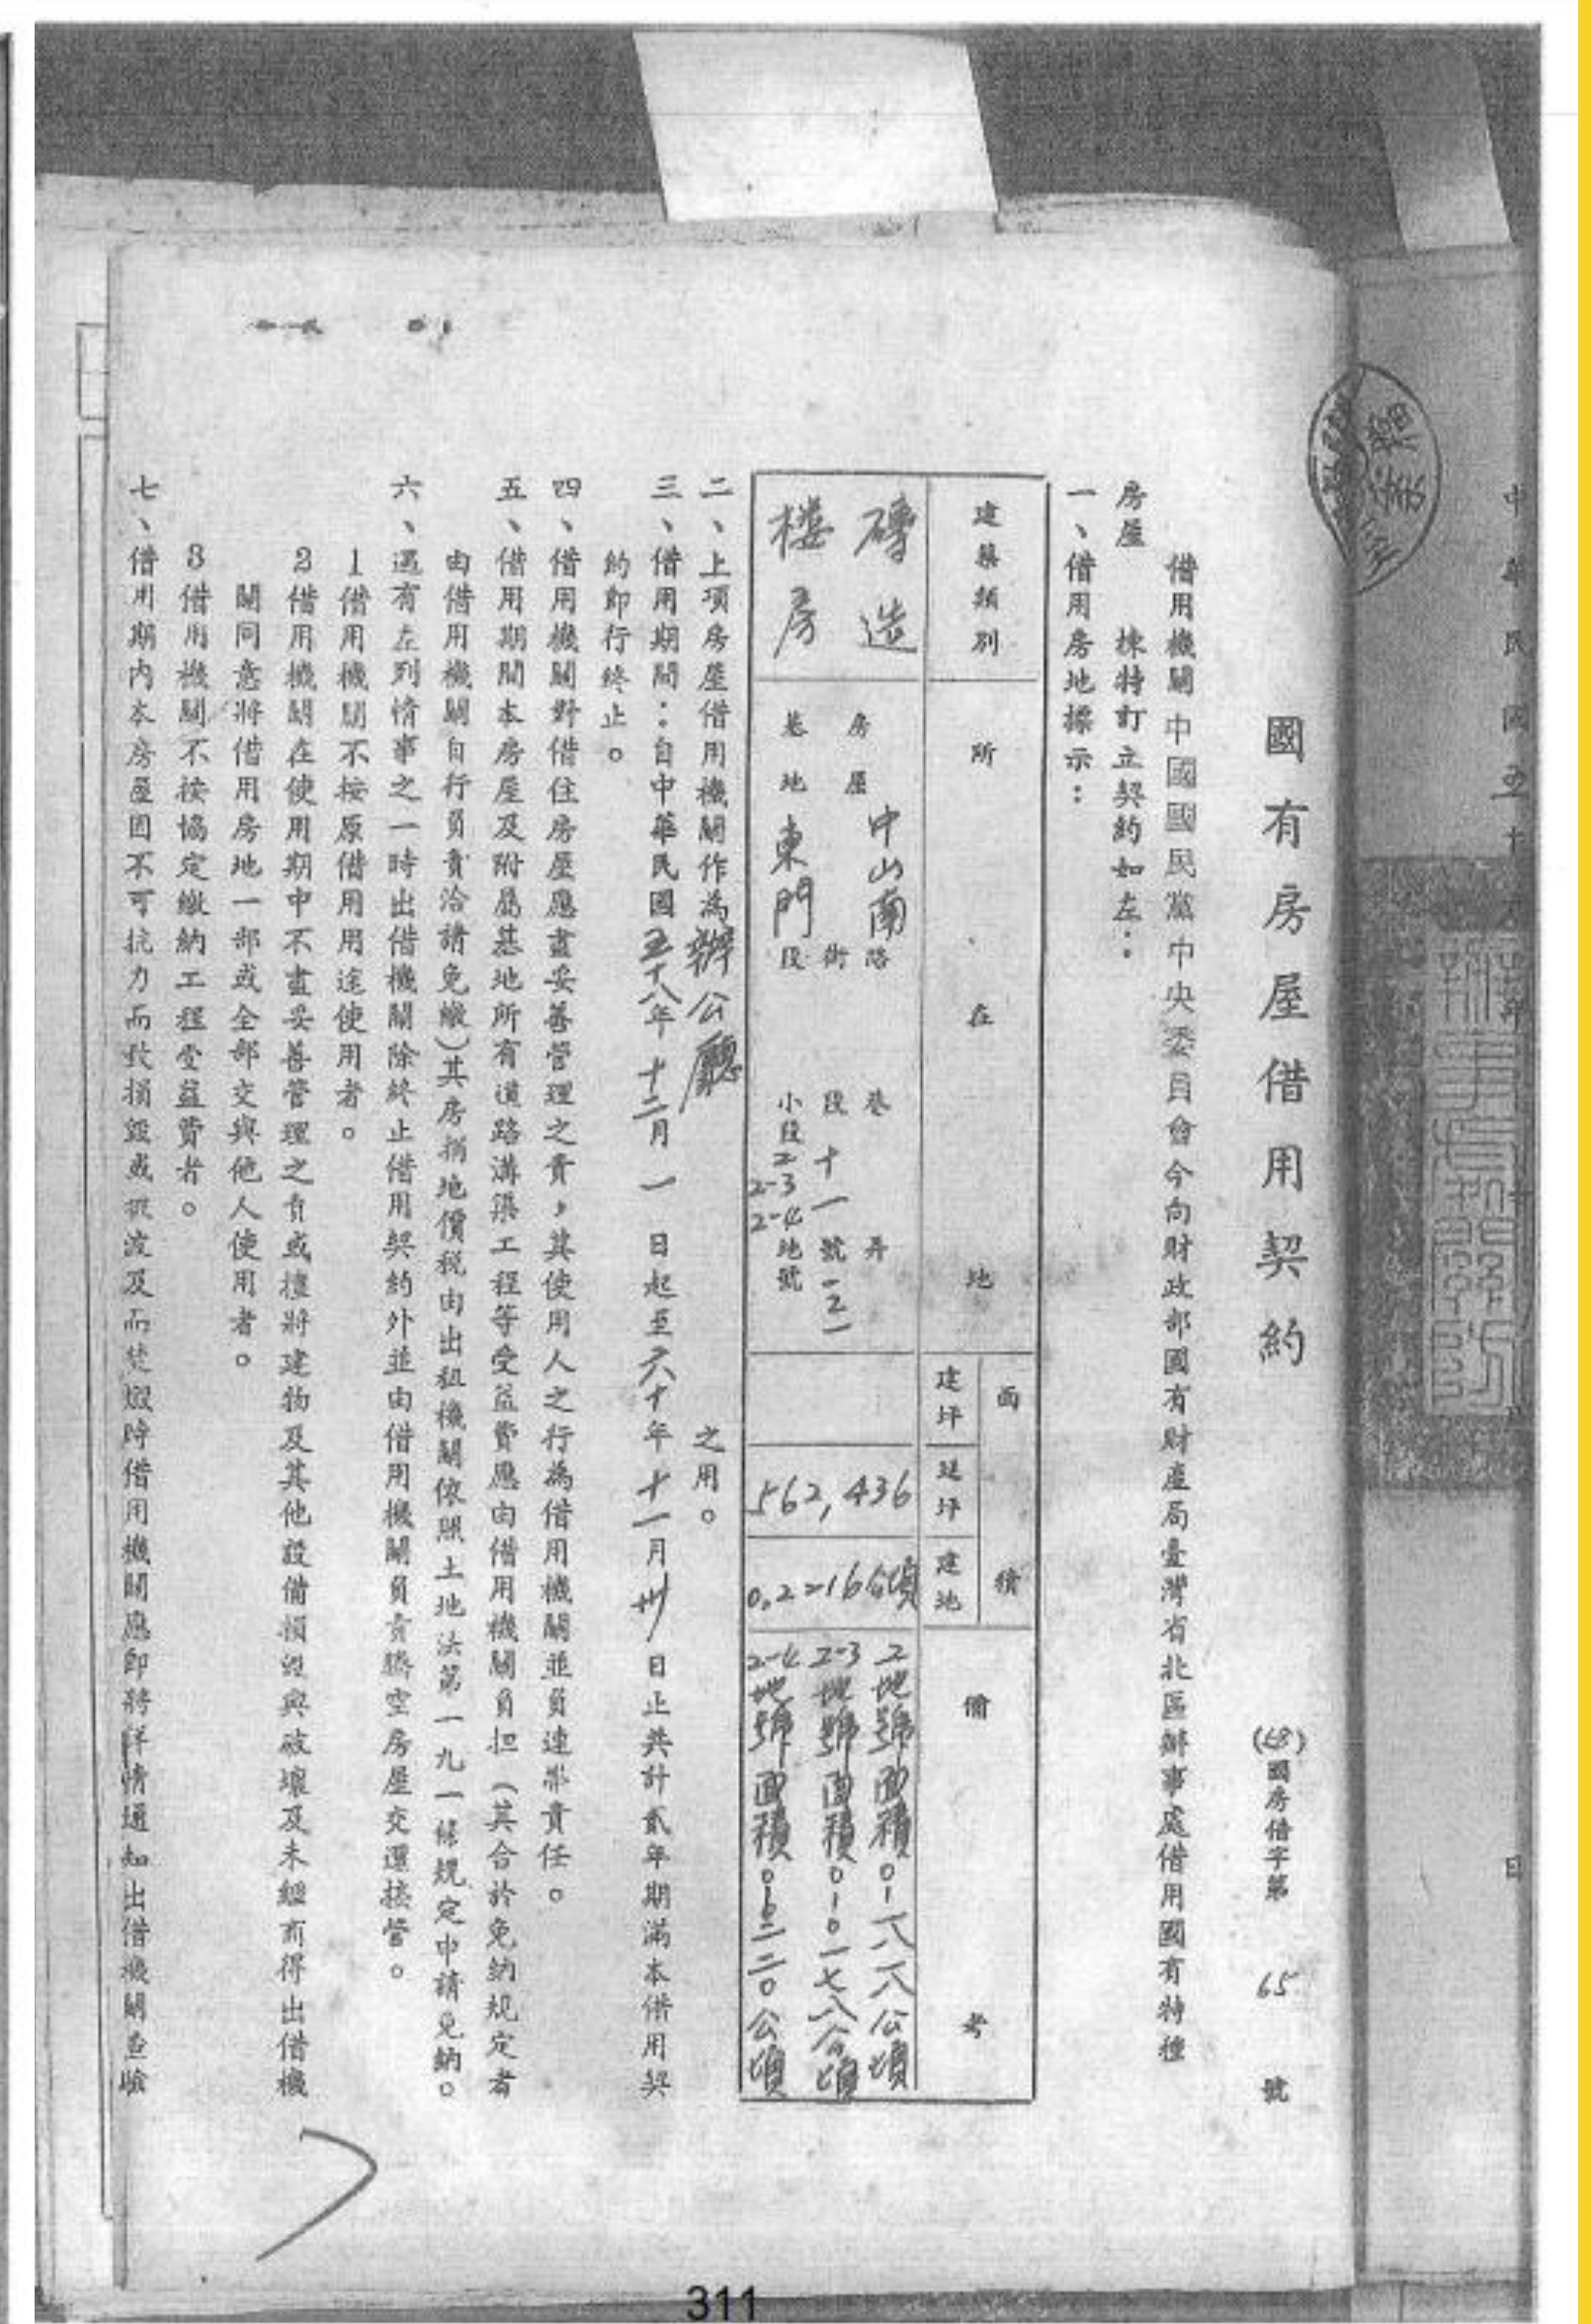 中華民國五十
日
國有房屋借用契約
國房借字第 65 號
借用機關中國國民黨中央委員會今向財政部國有財產局臺灣省北區辦事處借用國有特種
房屋 棟特訂立契約如左：
一、借用房地標示：
建築類別
所在地
面積
建坪
延坪
建地
備考
磚造
樓房
房屋 中山南 路 巷 弄
街 段 十一 號
巷
地 東門 段 小段 2 2-3 2-4 地號
562,436
2地號面積0-一八一八公頃
2-3地號面積0-0一七八公頃
2-4地號面積
公頃
二、上項房屋借用機關作為辦公廳 之用。
三、借用期間：自中華民國五十八年十二月一日起至六十年十一月卅日止共計貳年期滿本借用契
約即行終止。
四、借用機關對借住房屋應盡妥善管理之責，其使用人之行為借用機關並負連帶責任。
五、借用期間本房屋及附屬基地所有道路溝渠工程等受益費應由借用機關負担（其合於免納規定者
由借用機關自行負責洽請免繳）其房捐地價稅由出租機關依照土地法第一九一條規定申請免納。
六、遇有左列情事之一時出借機關除終止借用契約外並由借用機關負責騰空房屋交還接管。
1借用機關不按原借用用途使用者。
2借用機關在使用期中不盡妥善管理之責或擅將建物及其他設備損毀與破壞及未經商得出借機
關同意將借用房地一部或全部交與他人使用者。
3借用機關不按協定繳納工程受益費者。
七、借用期內本房屋因不可抗力而致損毀或被波及而焚燬時借用機關應即將詳情通知出借機關查驗
311